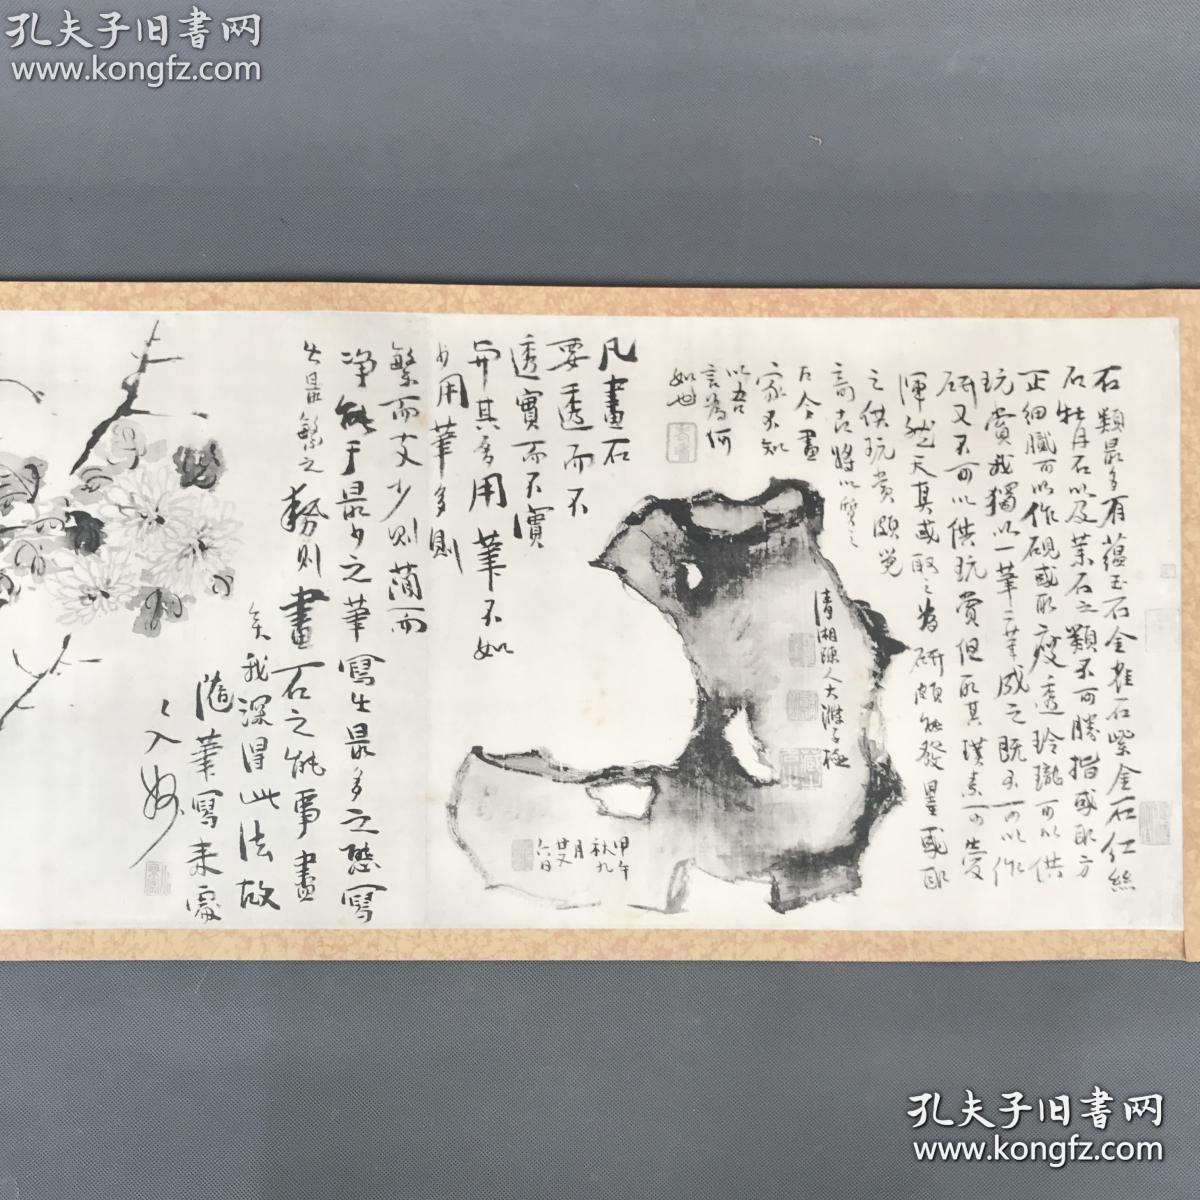 孔夫子旧書网
www.kongfz.com
石類最多有蘊玉石金雀石紫金石紅絲
石牡丹石以及葉石之類不可勝指或取方
正細膩可以作硯或取瘦透玲瓏可以供
玩賞我獨以一筆二筆成之既不可以作
研又不可以供玩賞但取其璞素可愛
渾然天真或取之為研頗能發墨或取
之供玩賞頗覺
奇古將以質之
古今畫
家不知
以吾
言為何
如也
清湘陳人大滌子極
甲午
秋九
月
廿又
六日
凡畫石
要透而不
透實而不實
與其多用筆不如
少用筆多則
繁而文少則簡而
净能于最少之筆寫出最多之態寫
出最繁之勢則畫石之能事盡
矣我深得此法故
隨筆寫來處
人妙
孔夫子旧書网
www.kongfz.com